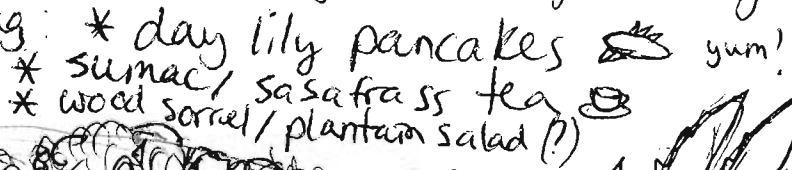 g: * day lily pancakes yum!
* sumac/ sasafrass tea
* wood sorrel/plantain salad (?)